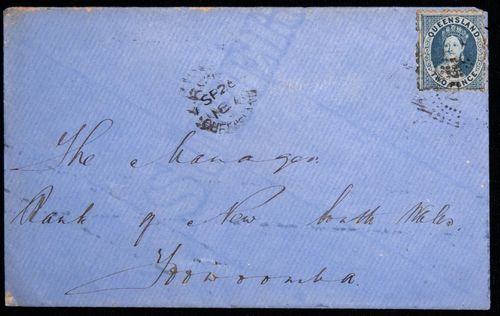 QUEENSLAND
TWO PENCE
SP 26
QUEENSLAND
The Manager
Bank of New South Wales.
Toowoomba.